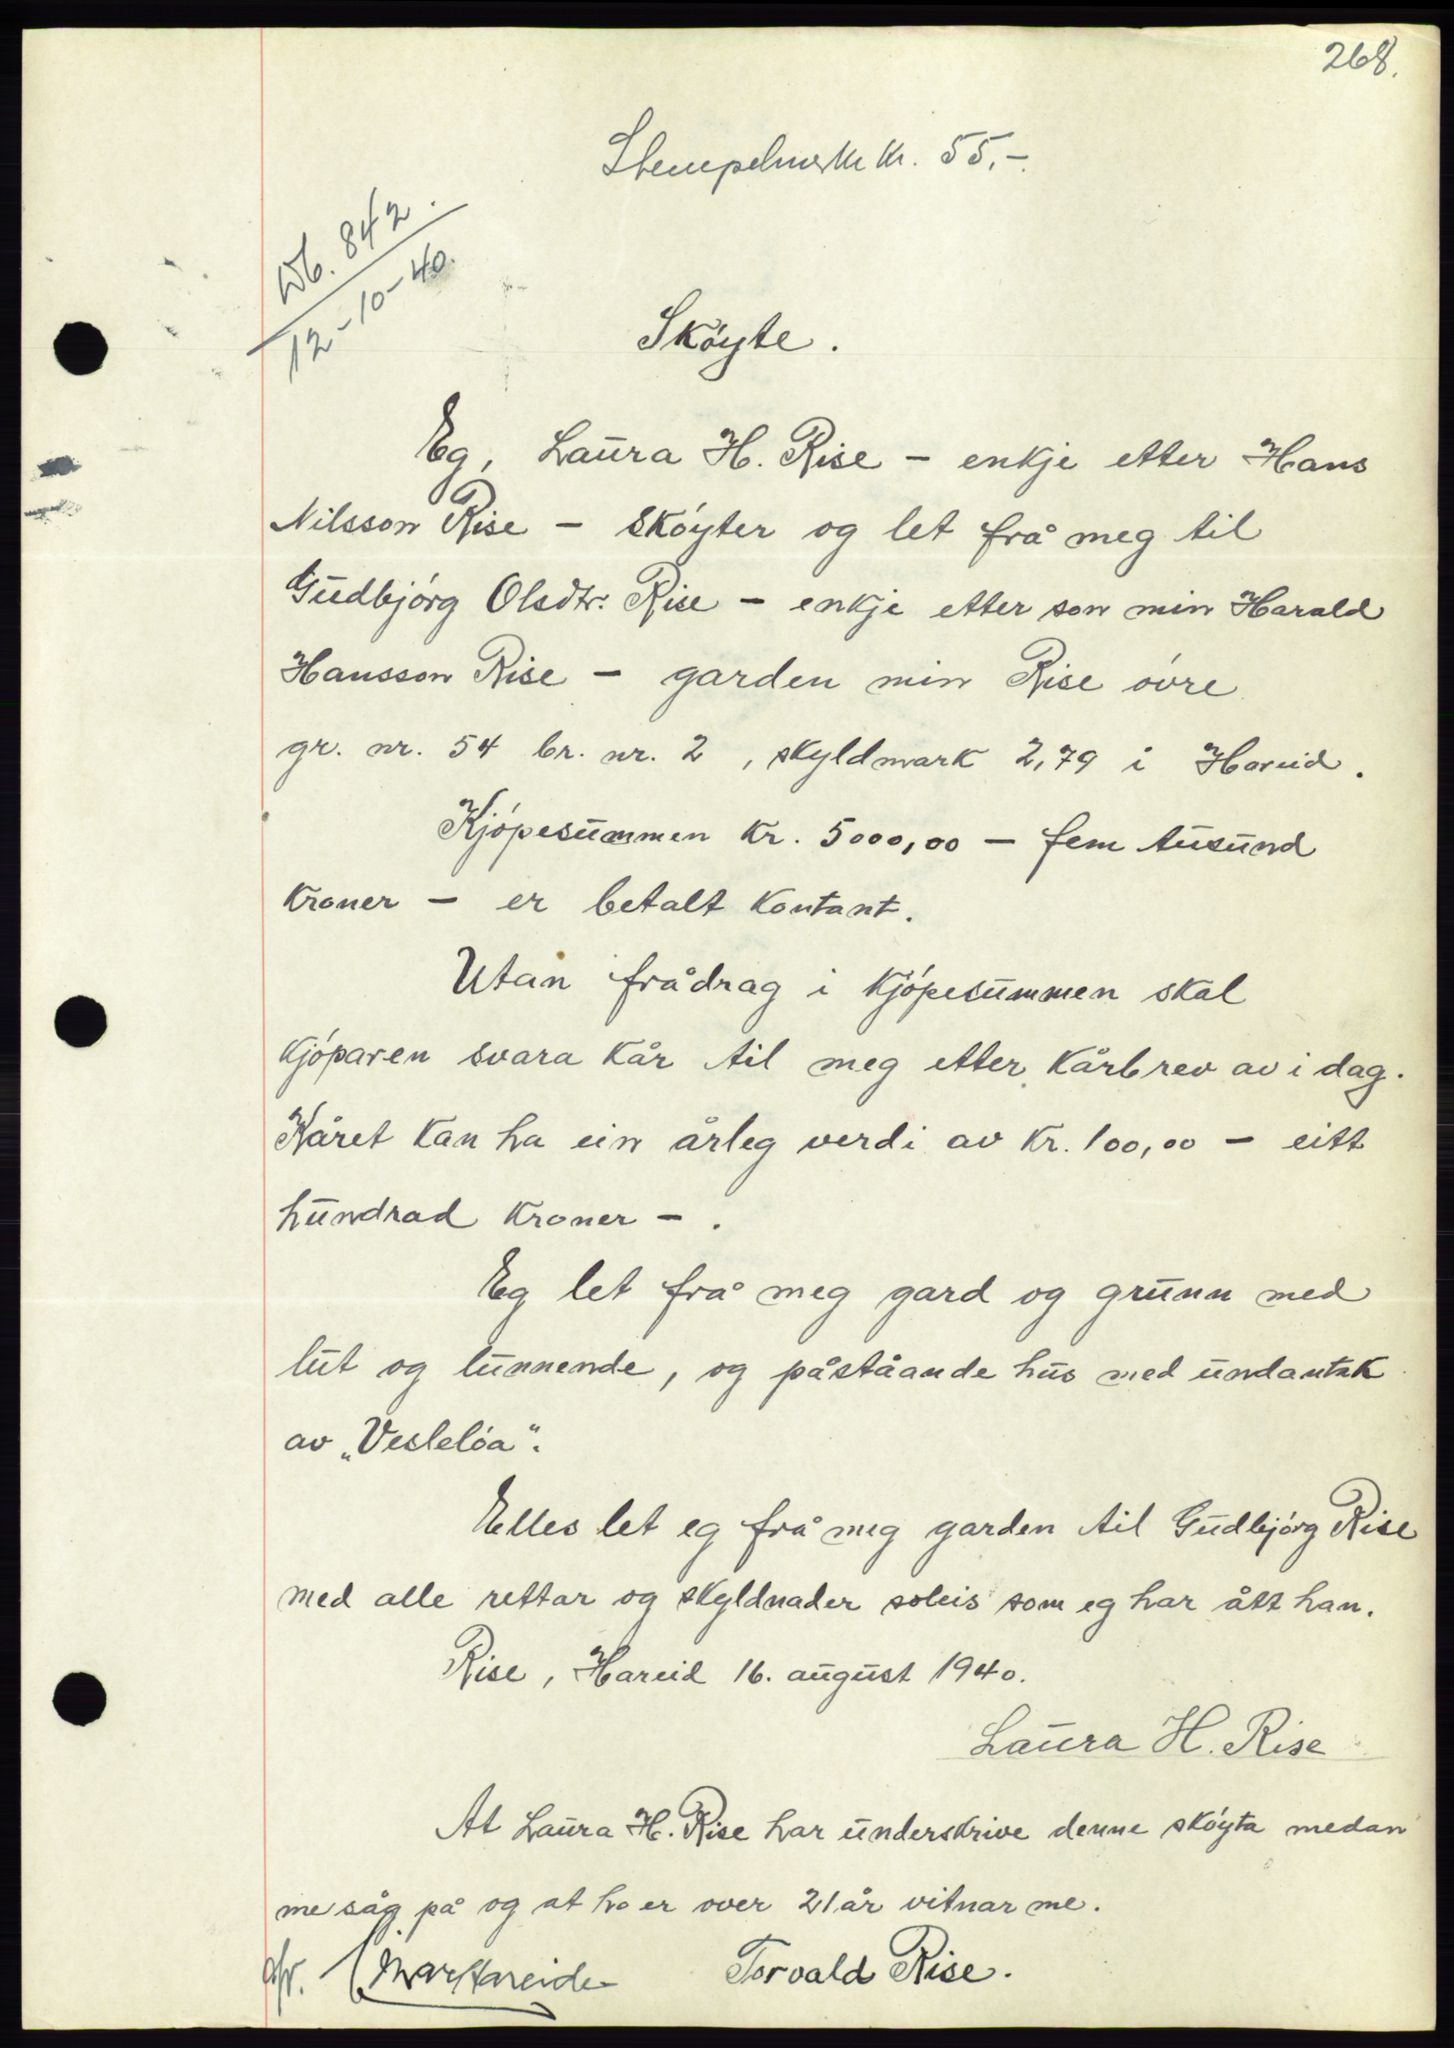 268.
Stempelmerke kr. 55.-.
Db. 842.
12-10-40.
Skóyte.
Eg, Laura H. Rise - enkje etter Hans
Nilsson Rise - skóyter og let frå meg til
Gudbjórg Olsdtr. Rise - enkje etter son min Harald
Hansson Rise - garden min Rise óvre
gr. nr. 54 br. nr. 2, skyldmark 2,79 i Hareid.
Kjópesummen kr. 5000,00 - fem tusund
kroner - er betalt kontant.
Utan frådrag i kjópesummen skal
kjóparen svara kår til meg etter kårbrev av i dag.
Kåret kan ha ein årleg verdi av kr. 100,00 - eitt
hundrad kroner - .
Eg let frå meg gard og grunn med
lut og lunnende, og påståande hus med undantak
av „Veslelóa“.
Elles let eg frå meg garden til Gudbjórg Rise
med alle rettar og skyldnader soleis som eg har ått han.
Rise, Hareid 16. august 1940.
Laura H. Rise
At Laura H. Rise har underskrive denne skóyta medan
me såg på og at ho er over 21 år vitnar me.
Ivar Hareide Torvald Rise.